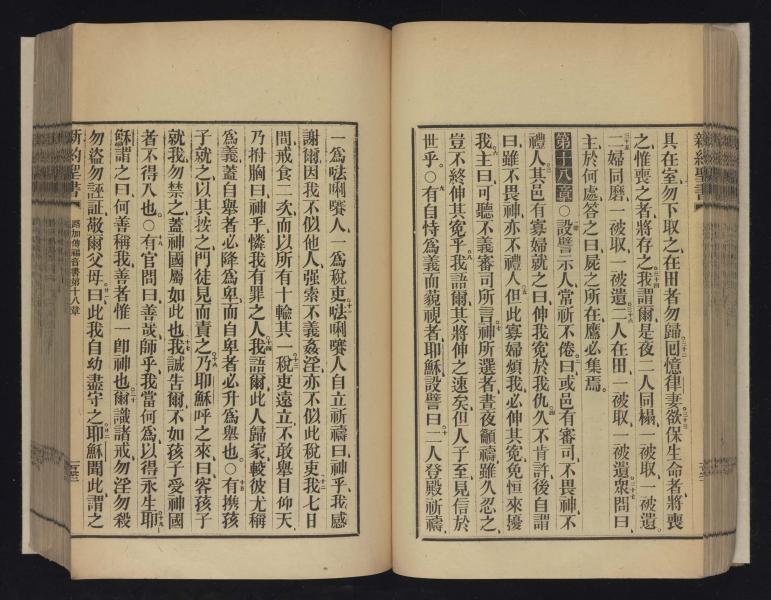 新約聖書
具在室勿下取之在田者勿歸回憶律妻欲保生命者將喪
之惟喪之者將存之我謂爾是夜二人同榻一被取一被遺
二婦同磨一被取一被遺二人在田一被取一被遺衆問曰
主於何處答之曰屍之所在鷹必集焉
第十八章○設譬示人當祈不倦曰或邑有審司不畏神不
禮人其邑有寡婦就之曰伸我寃於我仇久不肯許後自謂
曰雖不畏神亦不禮人但此寡婦煩我必伸其寃免恒來擾
我主曰可聽不義審司所言神所選者晝夜籲禱雖久忍之
豈不終伸其寃乎我語爾其將伸之速矣但人子至見信於
世乎○有自恃爲義而藐視者耶穌設譬曰二人登殿祈禱
一爲𠵽唎㘔人一爲稅吏𠵽唎㘔人自立祈禱曰神乎我感
謝爾因我不似他人强索不義姦淫亦不似此稅吏我七日
間戒食二次而以所有十輸其一稅吏遠立不敢舉目仰天
乃拊胸曰神乎憐我有罪之人我語爾此人歸家較彼尤稱
爲義蓋自舉者必降爲卑而自卑者必升爲舉也○有携孩
子就之以其按之門徒見而責之乃耶穌呼之來曰容孩子
就我勿禁之蓋神國屬如此也我誠告爾不如孩子愛神國
者不得入也○有官問曰善哉師乎我當何爲以得永生耶
穌謂之曰何善稱我善者惟一卽神也爾識諸戒勿淫勿殺
勿盜勿誣証敬爾父母曰此我自幼盡守之耶穌聞此謂之
新約聖書 路加傳福音書第十八章